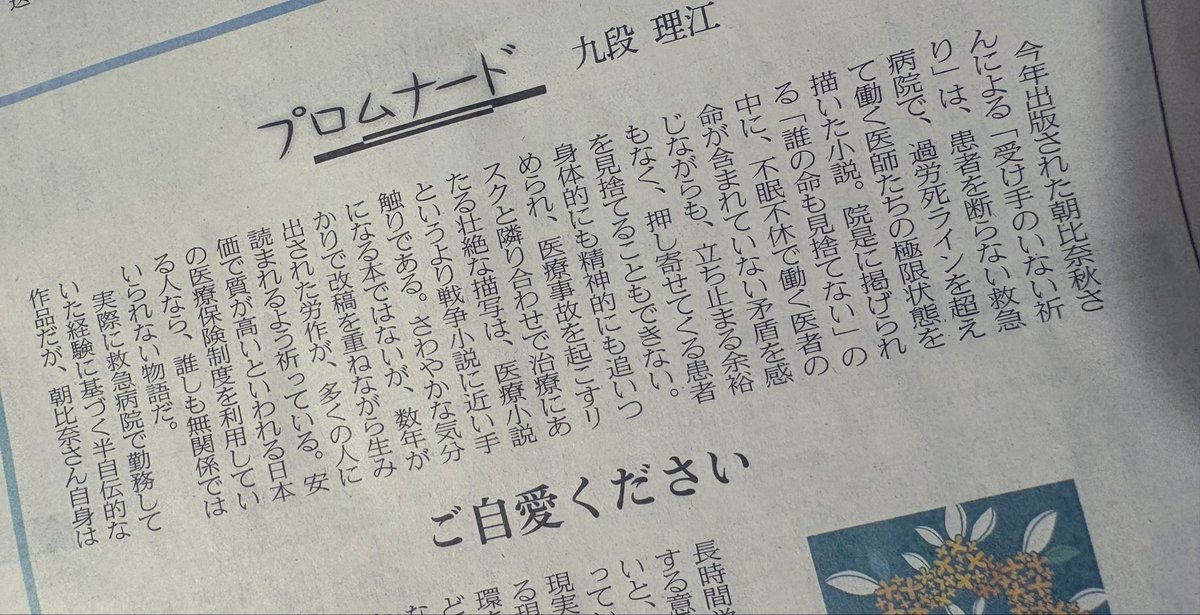 プロムナード
九段 理江
今年出版された朝比奈秋さ
んによる「受け手のいない祈
り」は、患者を断らない救急
病院で、過労死ラインを超え
て働く医師たちの極限状態を
描いた小説。院是に掲げられ
る「誰の命も見捨てない」の
中に、不眠不休で働く医者の
命が含まれていない矛盾を感
じながらも、立ち止まる余裕
もなく、押し寄せてくる患者
を見捨てることもできない。
身体的にも精神的にも追いつ
められ、医療事故を起こすリ
スクと隣り合わせで治療にあ
たる壮絶な描写は、医療小説
というより戦争小説に近い手
触りである。さわやかな気分
になる本ではないが、数年が
かりで改稿を重ねながら生み
出された労作が、多くの人に
読まれるよう祈っている。安
価で質が高いといわれる日本
の医療保険制度を利用してい
る人なら、誰しも無関係では
いられない物語だ。
実際に救急病院で勤務して
いた経験に基づく半自伝的な
作品だが、朝比奈さん自身は
ご自愛ください
長時間
する意
いと、
ってい
現実
る現
環
ど